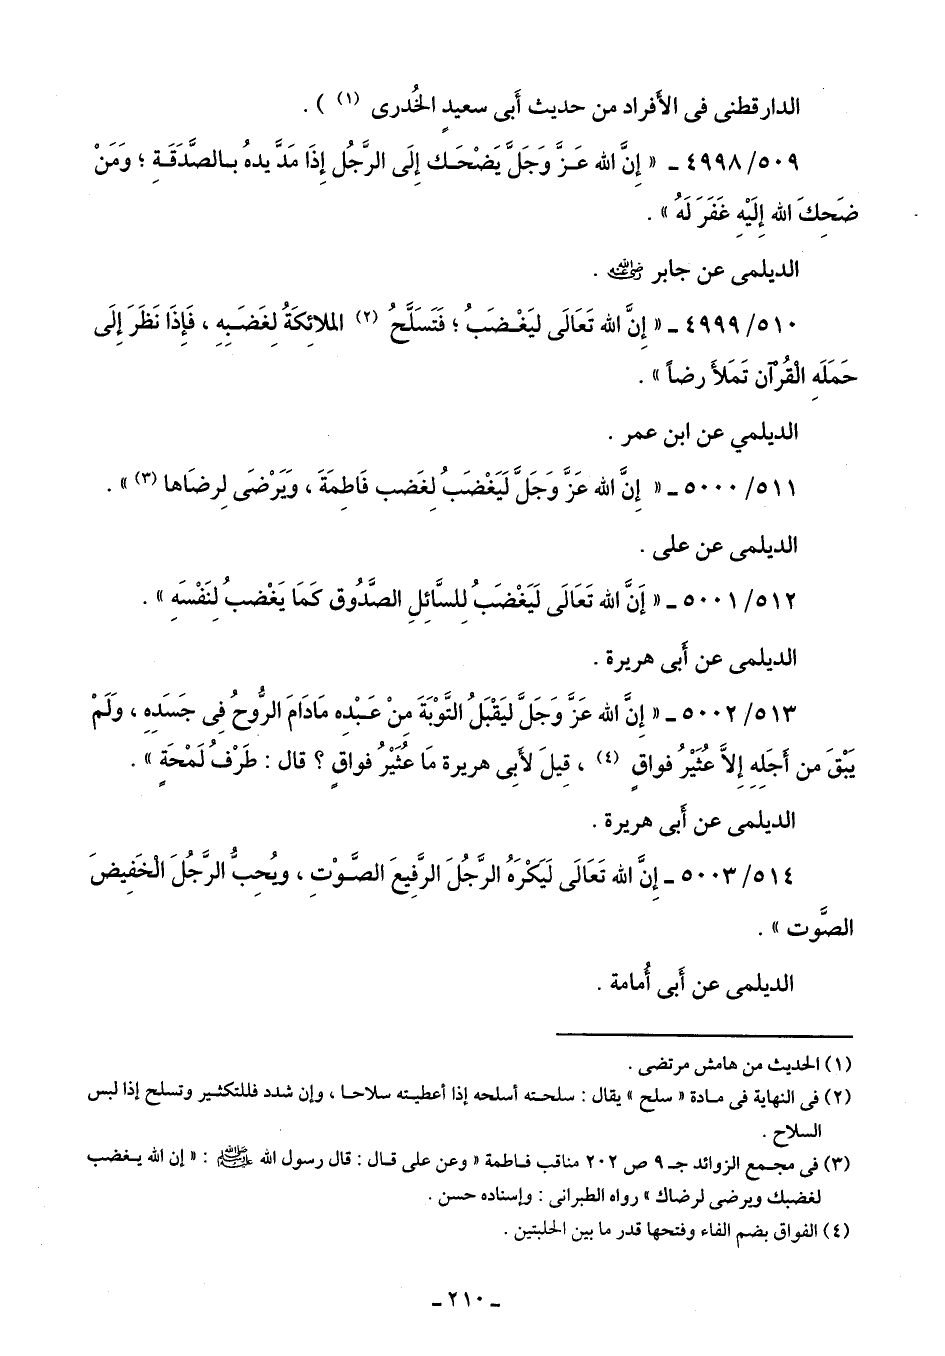 الدارقطنى فى الأفراد من حديث أَبى سعيدٍ الخُدرى (١) ) .
٤٩٩٨/٥٠٩ ـ « إِنَّ الله عَزَّ وَجَلَّ يَضْحَكُ إِلَى الرَّجُلِ إِذَا مَدَّ يدهُ بالصَّدَقَةِ ؛ وَمَنْ
ضَحِكَ الله إِلَيْهِ غَفَرَ لَهُ » .
الديلمى عن جابر رضي الله عنه .
٤٩٩٩/٥١٠ ـ « إِنَّ الله تَعَالَى لَيَغْضَبُ ؛ فَتَسَلَّحُ (٢) الملائِكَةُ لِغَضَبِهِ ، فَإِذَا نَظَرَ إِلَى
حَمَلَهِ الْقُرْآن تَمَلأَ رضاً » .
الديلمي عن ابن عمر .
٥٠٠٠/٥١١ ـ « إِنَّ الله عَزَّ وَجَلَّ لَيَغْضَبُ لِغَضَبِ فَاطِمَةَ ، وَيَرْضَى لِرضَاها (٣) » .
الديلمى عن على .
٥٠٠١/٥١٢ ـ « إَنَّ الله تَعَالَى لَيَغْضَبُ لِلسَّائِلِ الصَّدُوق كَمَا يَغْضبُ لِنَفْسَهِ » .
الديلمى عن أَبى هريرة .
٥٠٠٢/٥١٣ ـ « إِنَّ الله عَزَّ وَجَلَّ لَيَقْبَلُ التَّوْبَةَ مِنْ عَبْدِه مَادَامَ الرُّوحُ فِى جَسَدِهِ ، وَلَمْ
يَبْقَ مِن أَجَلِهِ إِلاَّ عُثَيْرُ فواقٍ (٤) ، قِيلَ لأَبِى هريرة مَا عُثَيْرُ فواقٍ ؟ قال : طَرْفُ لَمْحَةٍ » .
الديلمى عن أَبى هريرة .
٥٠٠٣/٥١٤ ـ إِنَّ الله تَعَالَى لَيَكْرَهُ الرَّجُلَ الرَّفِيعَ الصَّوْتِ ، وَيُحِبُّ الرَّجُلَ الْخَفِيضَ
الصَّوت » .
الديلمى عن أَبى أُمامة .
(١) الحديث من هامش مرتضى .
(٢) فى النهاية فى مادة « سلح » يقال : سلحته أسلحه إذا أعطيته سلاحا ، وإن شدد فللتكثير وتسلح إذا لبس
السلاح .
(٣) فى مجمع الزوائد جـ ٩ ص ٢٠٢ مناقب فاطمة « وعن على قال : قال رسول الله ﷺ : « إن الله يغضب
لغضبك ويرضى لرضاك » رواه الطبرانى : وإسناده حسن .
(٤) الفواق بضم الفاء وفتحها قدر ما بين الحلبتين .
ـ ٢١٠ ـ